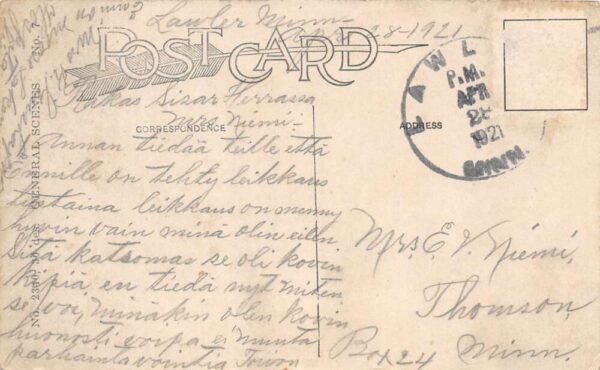 Lawler Minn-
Apr 28-1921
POST CARD
Rakas Sisar Herrassa
Mrs. Niemi-
CORRESPONDENCE
ADDRESS
Annan tiedää teille että
Ennille on tehty leikkaus
tiistaina leikkaus on mennyt
hyvin vain minä olin eilen
Sitä katsomas se oli kovin
kipiä en tiedä nyt miten
se voi, minäkin olen kovin
huonosti voipa ei muuta
parhainta vointia Toivon
LAWL
P.M.
APR
28
1921
MINN.
Mrs. E. V. Niemi,
Thomson,
Box 24 Minn.
No. 2390 des. GENERAL SCENES No. 7